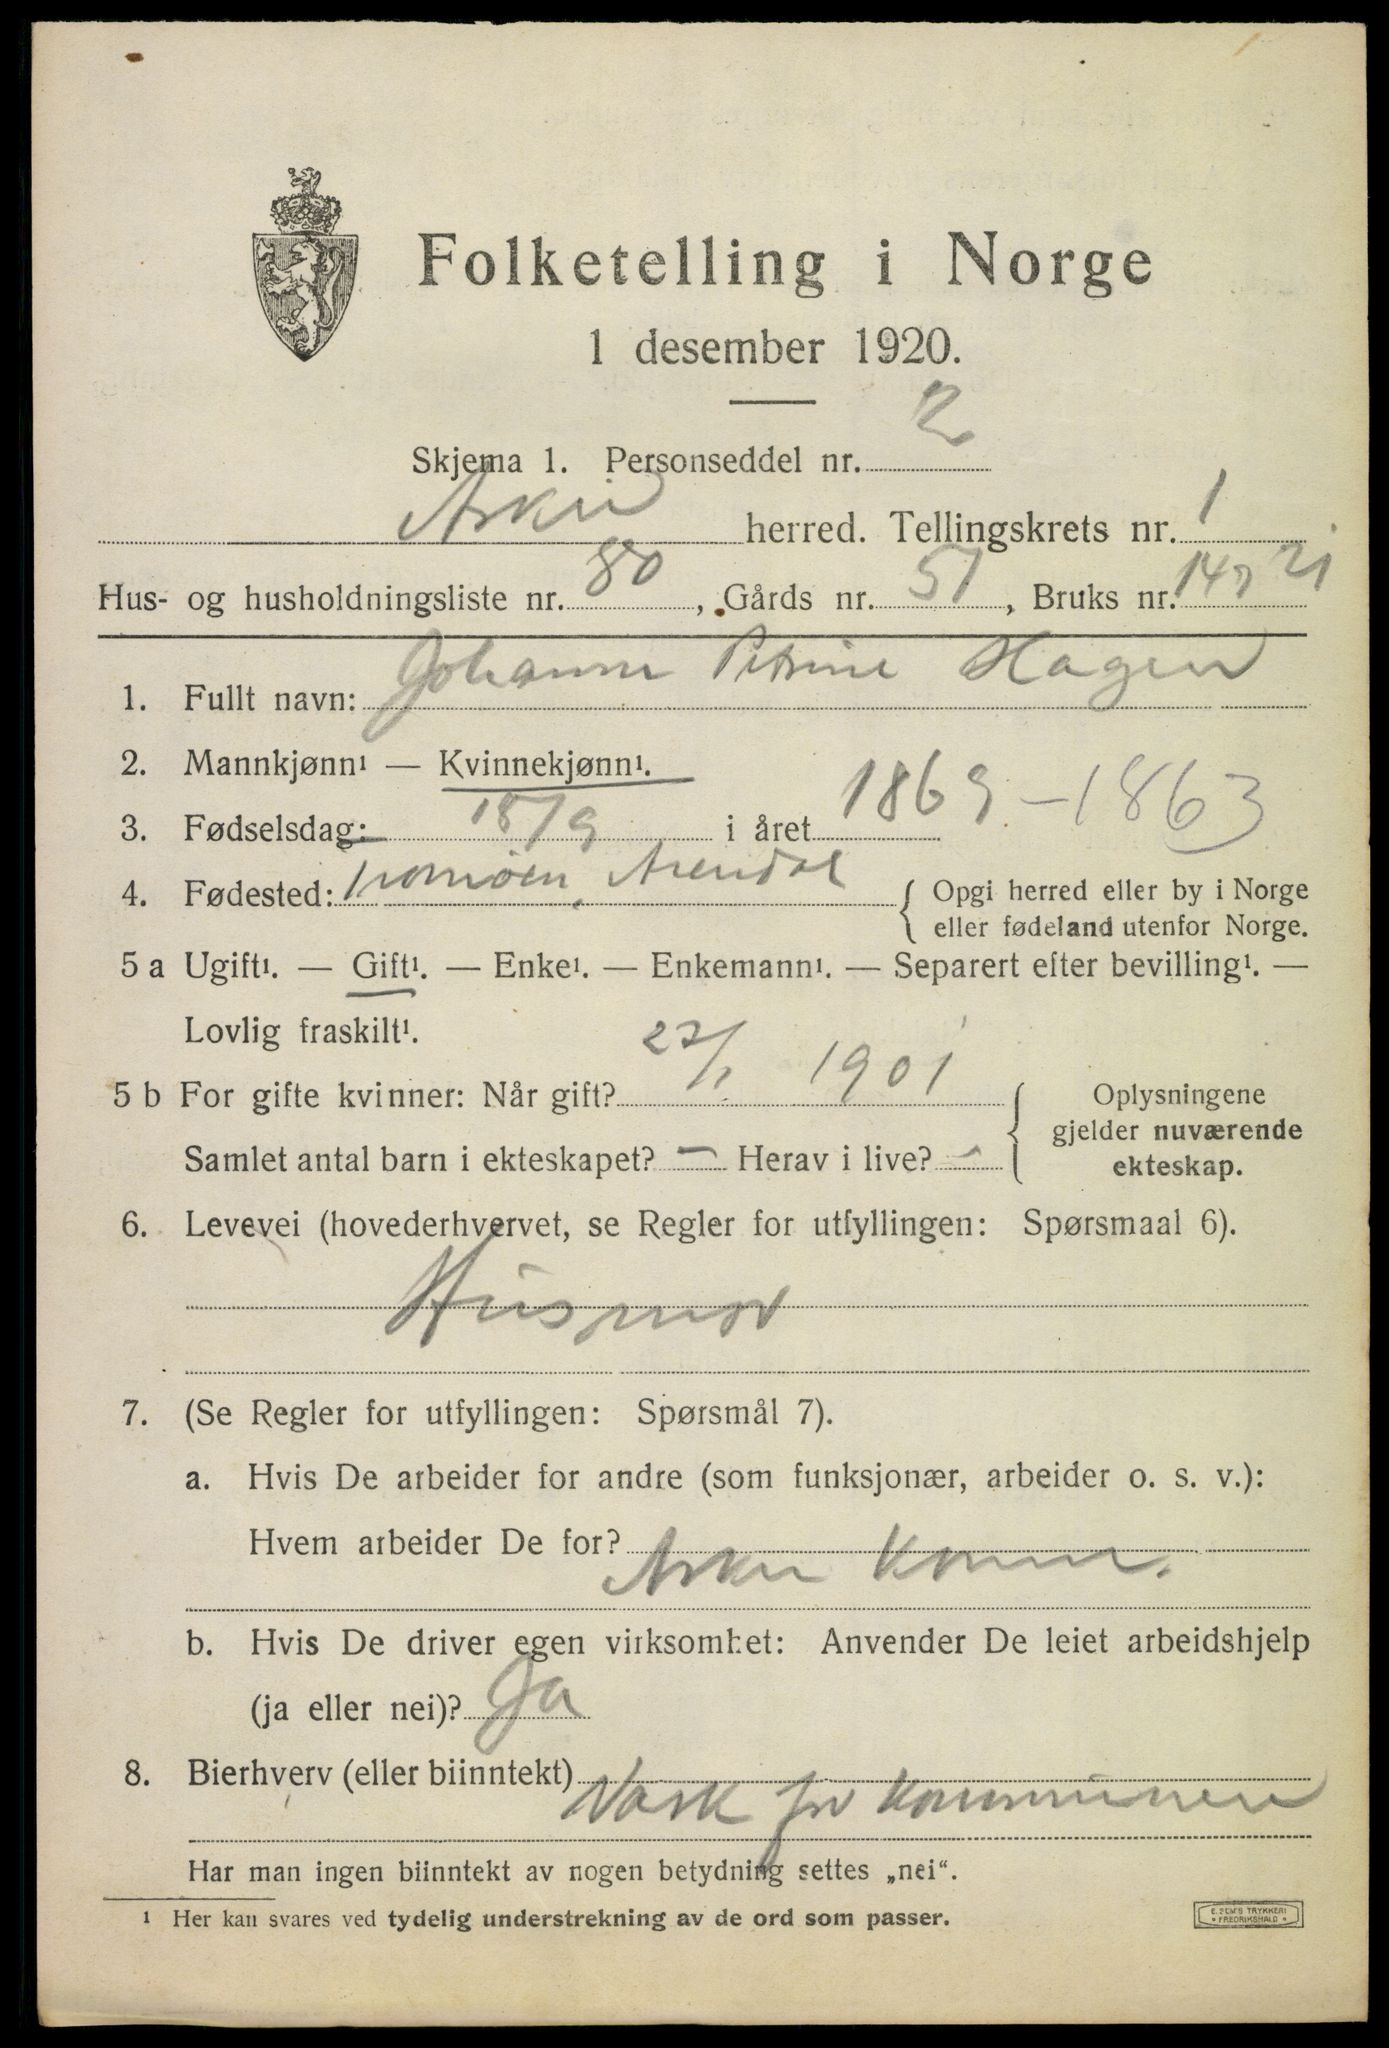 Folketelling i Norge
1 desember 1920.
Skjema 1. Personseddel nr. 2
Asker herred. Tellingskrets nr. 1
Hus- og husholdningsliste nr. 80, Gårds nr. 51, Bruks nr. 21
1. Fullt navn: Johanne Petrine Hagen
2. Mannkjønn¹ — Kvinnekjønn¹.
3. Fødselsdag: 18/9 i året 1869 - 1863
4. Fødested: Tromøen, Arendal
Opgi herred eller by i Norge
eller fødeland utenfor Norge.
5 a Ugift¹. — Gift¹. — Enke¹. — Enkemann¹. — Separert efter bevilling¹. —
Lovlig fraskilt¹.
5 b For gifte kvinner: Når gift? 22/1 1901
Samlet antal barn i ekteskapet? — Herav i live? -
Oplysningene
gjelder nuværende
ekteskap.
6. Levevei (hovederhvervet, se Regler for utfyllingen: Spørsmaal 6).
Husmor
7. (Se Regler for utfyllingen: Spørsmål 7).
a. Hvis De arbeider for andre (som funksjonær, arbeider o. s. v.):
Hvem arbeider De for? Asker Komm.
b. Hvis De driver egen virksomhet: Anvender De leiet arbeidshjelp
(ja eller nei)? Ja
8. Bierhverv (eller biinntekt) Vask for Kommunen
Har man ingen biinntekt av nogen betydning settes „nei“.
¹ Her kan svares ved tydelig understrekning av de ord som passer.
E. SEM'S TRYKKERI
• FREDRIKSHALD •